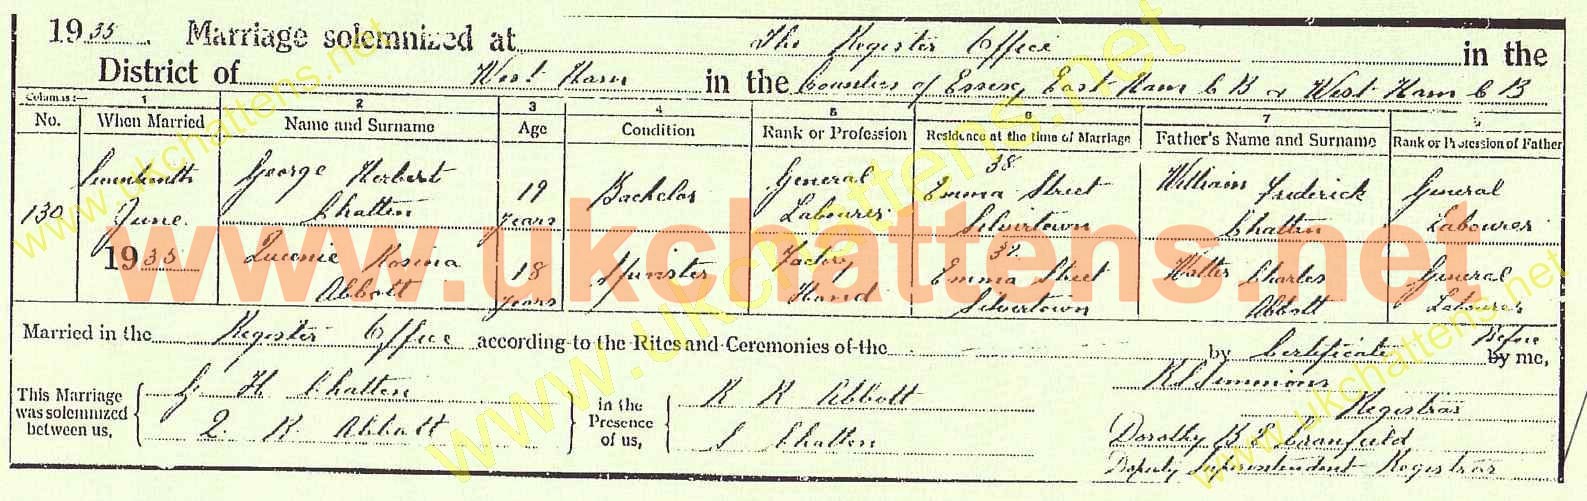 1935. Marriage solemnized at The Register Office in the
District of West Ham in the Counties of Essex, East Ham C B & West Ham C B
Columns:— 1 2 3 4 5 6 7 8
No. When Married Name and Surname Age Condition Rank or Profession Residence at the time of Marriage Father's Name and Surname Rank or Profession of Father
130 Seventeenth June 1935
George Herbert Chatten
19 years
Bachelor
General Labourer
38 Emma Street Silvertown
William Frederick Chatten
General Labourer
Queenie Rosina Abbott
18 years
Spinster
Factory Hand
32 Emma Street Silvertown
Walter Charles Abbott
General Labourer
Married in the Register Office according to the Rites and Ceremonies of the by Certificate Before by me,
This Marriage was solemnized between us,
G. H. Chatten
Q. R. Abbott
in the Presence of us,
R R Abbott
J Chatten
Simmons
Registrar
Dorothy B E Cranfield
Deputy Superintendent Registrar
www.ukchattens.net
www.ukchattens.net
www.ukchattens.net
www.ukchattens.net